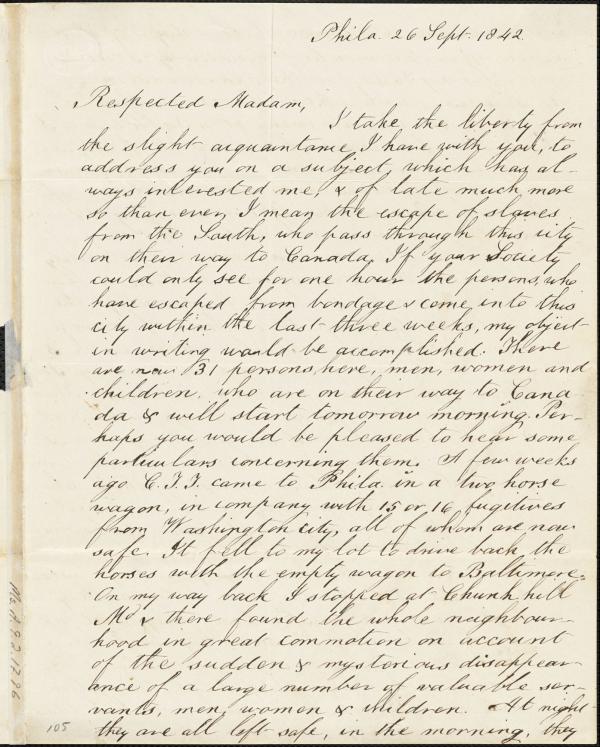 Phila. 26 Sept. 1842.
Respected Madam,
I take the liberty from
the slight acquaintance I have with you, to
address you on a subject, which has al-
ways interested me, & of late much more
so than ever, I mean the escape of slaves
from the South, who pass through this city
on their way to Canada. If your Society
could only see for one hour the persons, who
have escaped from bondage & come into this
city within the last three weeks, my object
in writing would be accomplished. There
are now 31 persons here, men, women and
children, who are on their way to Cana-
da & will start tomorrow morning. Per-
haps you would be pleased to hear some
particulars concerning them. A few weeks
ago C.T.T. came to Phila. in a two horse
wagon, in company with 15 or 16 fugitives
from Washington city, all of whom are now
safe. It fell to my lot to drive back the
horses with the empty wagon to Baltimore.
On my way back I stopped at Chunk hill
Md & there found the whole neighbour-
hood in great commotion on account
of the sudden & mysterious disappear-
ance of a large number of valuable ser-
vants, men, women & children. At night
they are all left safe, in the morning, they
105
Ms.A.9.2.17.96